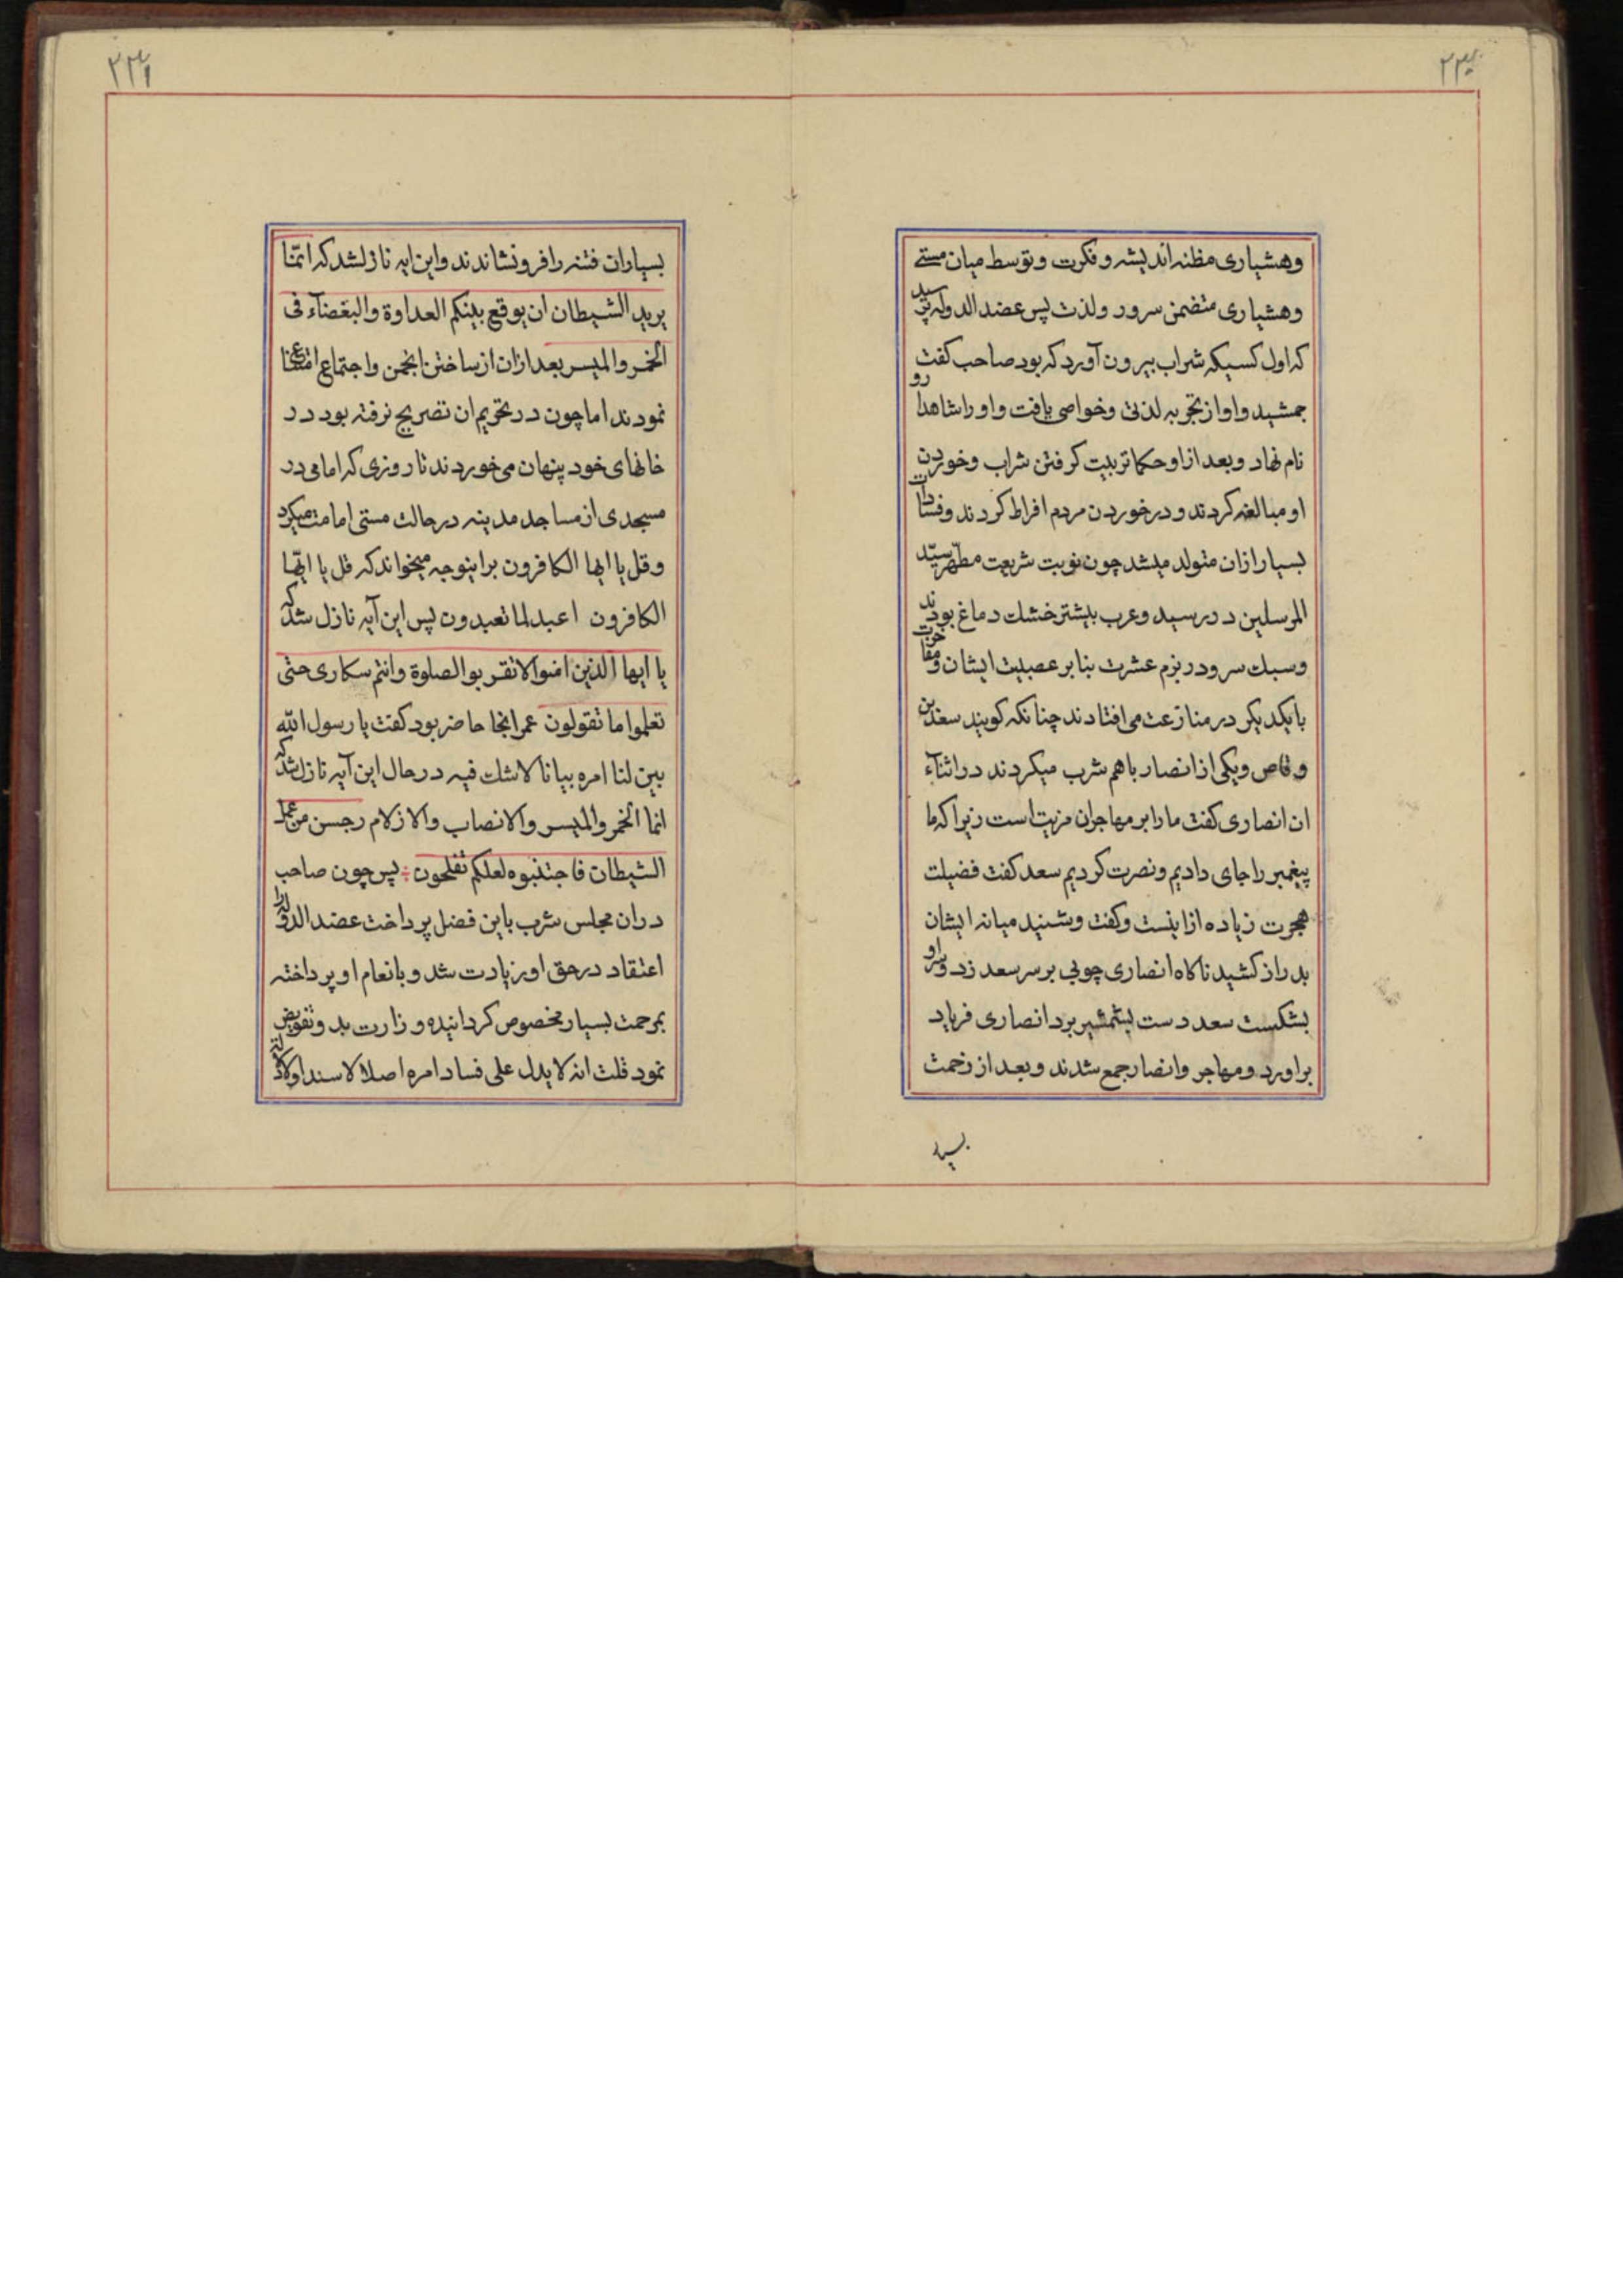 ۲۳۰
وهشیاری مظنه اندیشه و فکرت و توسط میان مستے
وهشیاری متضمن سرور ولذت پس عضد الدوله پرسید
که اول کسیکه شراب بیرون آورد که بود صاحب کفت
جمشید و او از تجربه لذتی وخواصی یافت و اورا شاهدارو
نام نهاد و بعد از او حکما تربیت کرفتن شراب وخوردن
او مبالغه کردند و در خوردن مردم افراط کردند وفسادات
بسیار ازان متولد میشد چون نوبت شریعت مطهر سیّد
المرسلین در رسید وعرب بیشتر خشك دماغ بودند
وسبك سر و در بزم عشرت بنا بر عصبیت ایشان ومفاخرت
بایکدیکر در منازعت می افتادند چنانکه کویند سعد بن
وقاص ویکی از انصار باهم شرب میکردند در اثناء
ان انصاری کفت مارا بر مهاجران مزیت است زیرا که ما
پیغمبر را جای دادیم و نصرت کردیم سعد کفت فضیلت
هجرت زیاده از اینست وکفت وشنید میانه ایشان
بدراز کشید ناکاه انصاری چوبی بر سر سعد زد وسر او
بشکست سعد دست بشمشیر برد انصاری فریاد
براورد ومهاجر وانصار جمع شدند وبعد از زحمت
۲۳۱
بسیاران فتنه را فرو نشاندند واین ایه نازلشد که انّما
یرید الشیطان ان یوقع بینکم العداوة والبغضآء فی
الخمر والمیسر بعد ازان از ساختن انجمن واجتماع امتناع
نمودند اما چون در تحریم ان تصریح نرفته بود در
خانهای خود پنهان می خوردند تا روزی که امامی در
مسجدی از مساجد مدینه در حالت مستی امامت میکرد
وقل یا ایها الکافرون براینوجه میخواند که قل یا ایّها
الکافرون اعبد لما تعبدون پس این آیه نازل شد که
یا ایها الذین امنوا لا تقربوا الصلوة وانتم سکاری حتی
تعلموا ما تقولون عمر انجا حاضر بود کفت یا رسول الله
بین لنا امره بیانا لاشك فیه در حال این آیه نازل شد که
انما الخمر والمیسر والانصاب والازلام رجس من عمل
الشیطان فاجتنبوه لعلکم تفلحون پس چون صاحب
دران مجلس شرب باین فضل پرداخت عضد الدوله را
اعتقاد در حق او زیادت شد و بانعام او پرداخته
بمرحمت بسیار مخصوص کردانیده و زارت بد وتفویض
نمود قلت انه لا یدل علی فساد امره اصلا لا سندا ولا